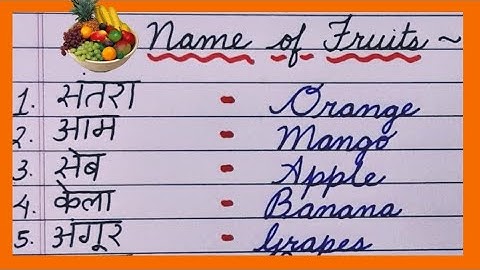 Name of Fruits ~
1. संतरा - Orange
2. आम - Mango
3. सेब - Apple
4. केला - Banana
5. अंगूर - Grapes